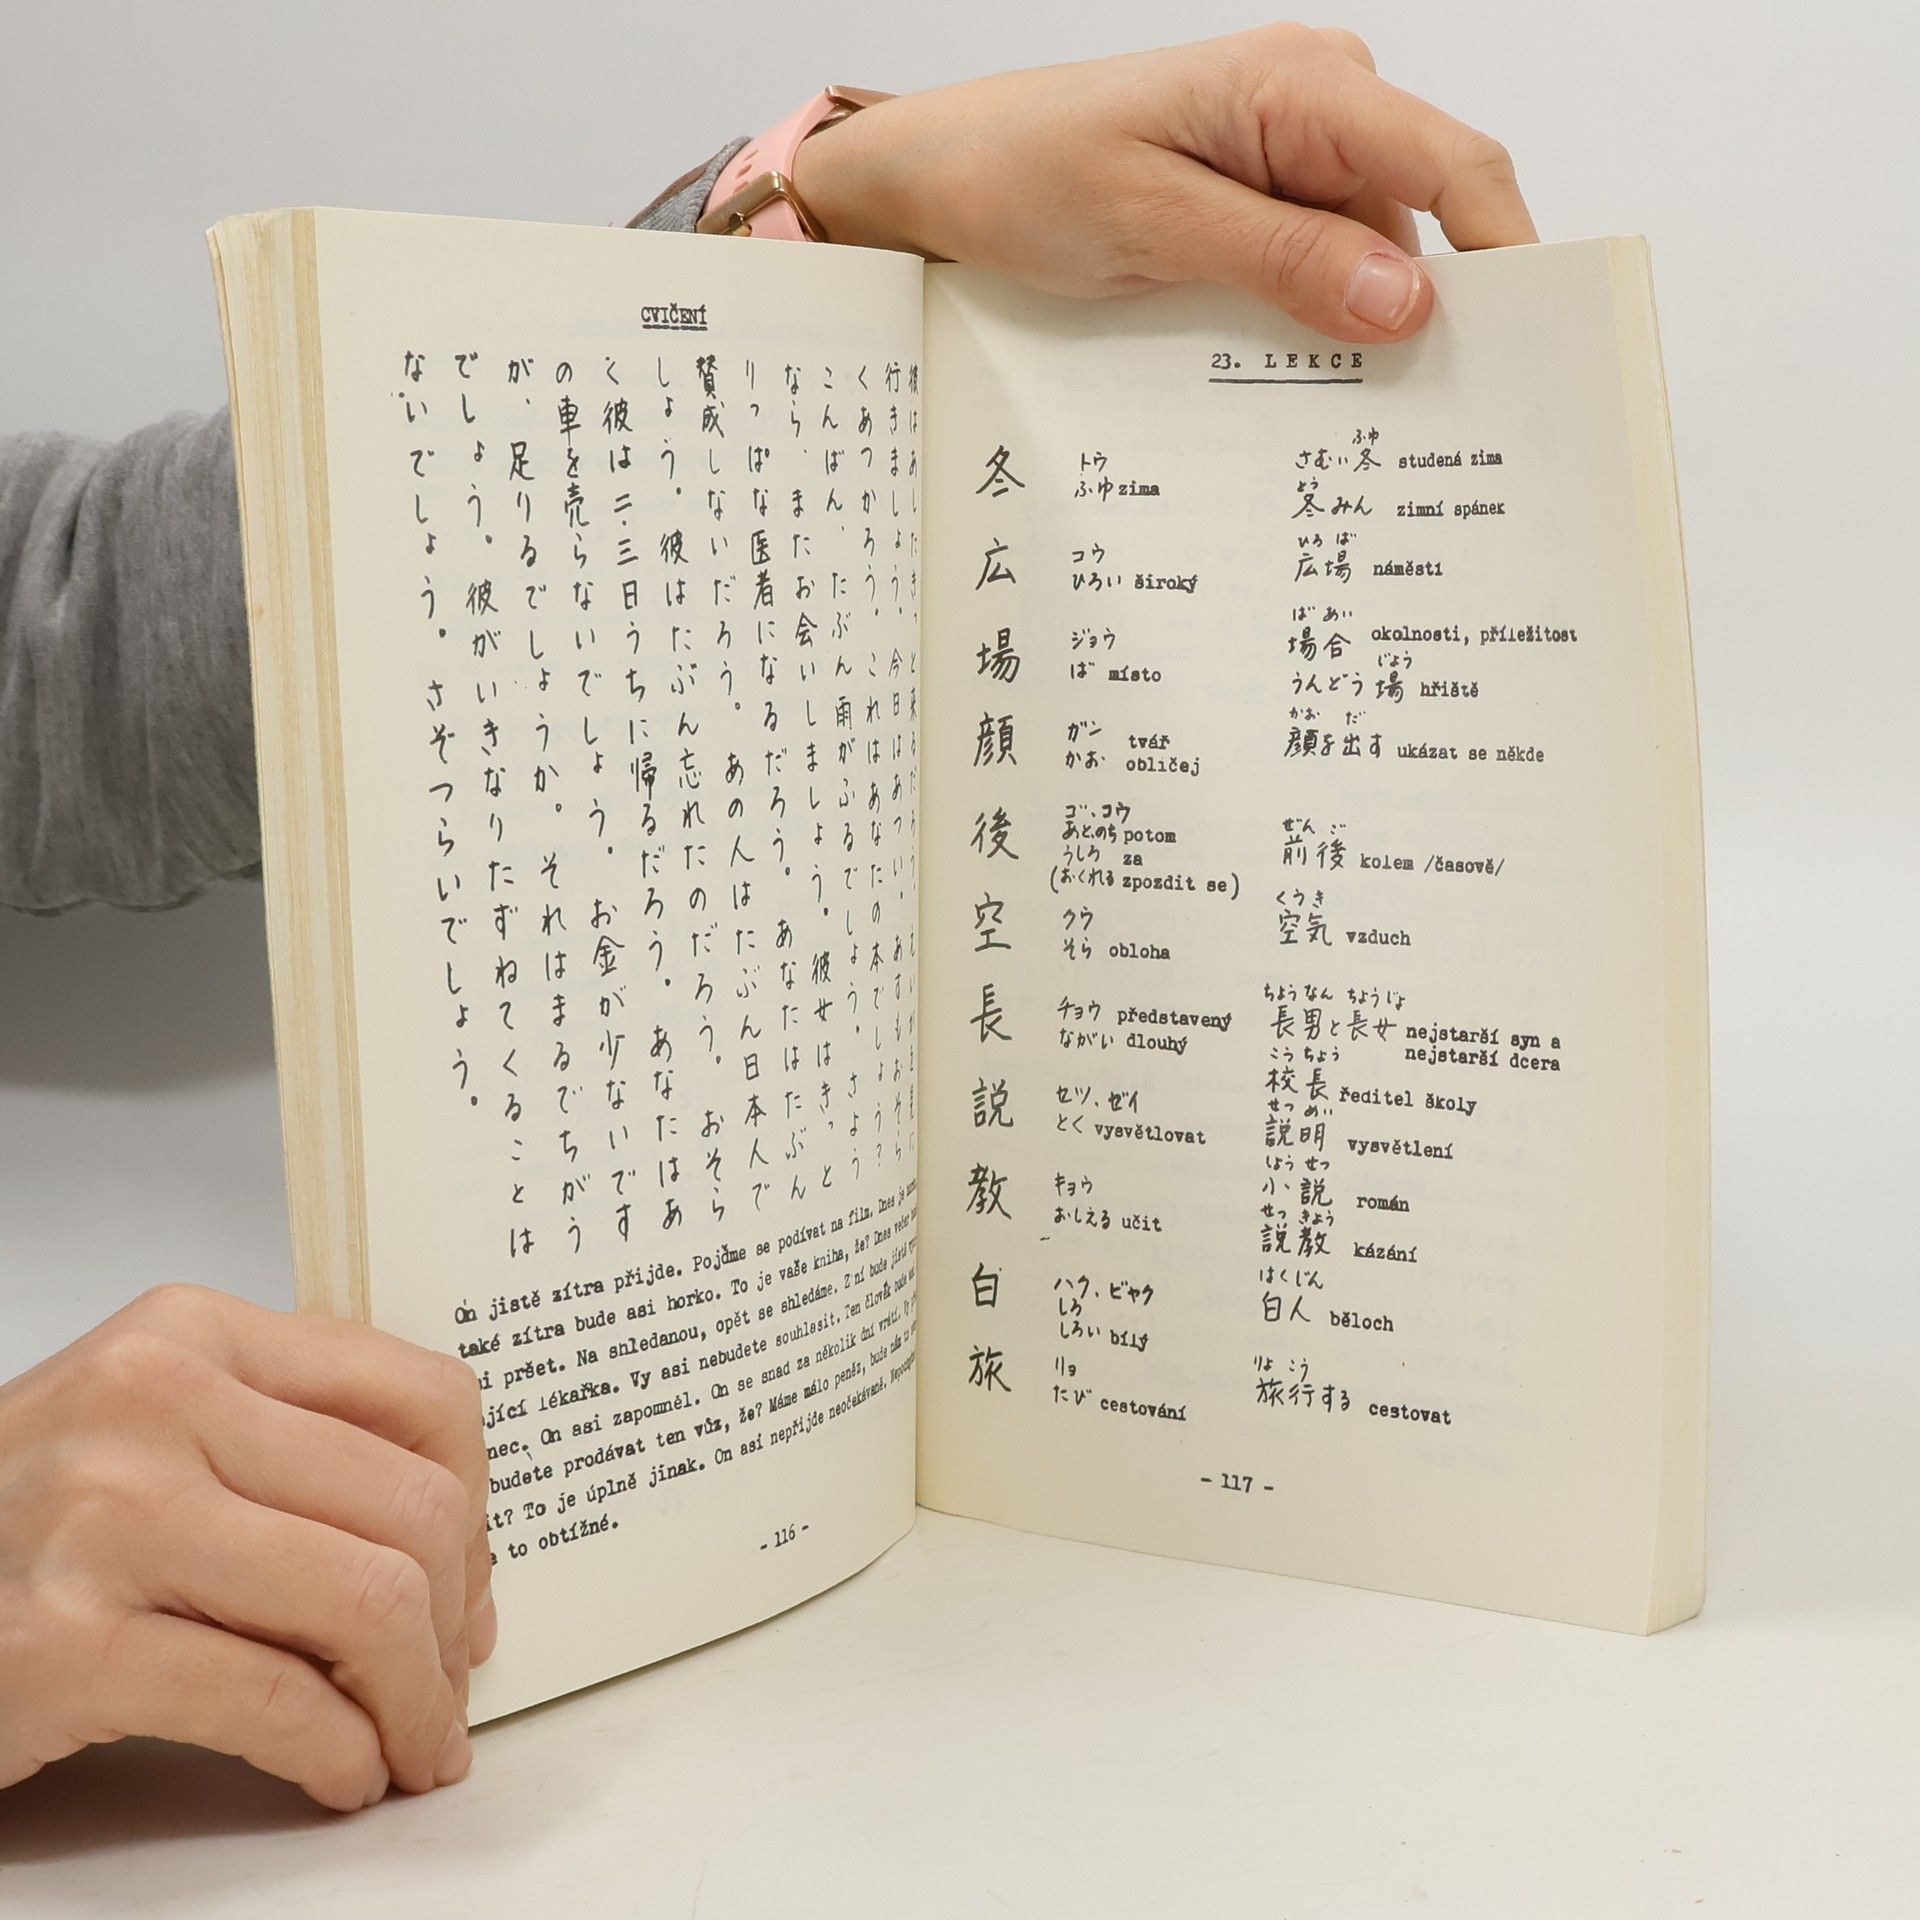 CVIČENÍ
彼はあしたきっと来るだろう。えいがを見に
行きましょう。今日はあつい。あすもおそら
くあつかろう。これはあなたの本でしょう？
こんばん、たぶん雨がふるでしょう。さよう
なら、またお会いしましょう。彼女はきっと
りっぱな医者になるだろう。あなたはたぶん
賛成しないだろう。あの人はたぶん日本人で
しょう。彼はたぶん忘れたのだろう。おそら
く彼は二・三日うちに帰るだろう。あなたはあ
の車を売らないでしょう。お金が少ないです
が、足りるでしょうか。それはまるでちがう
でしょう。彼がいきなりたずねてくることは
ないでしょう。さぞつらいでしょう。
On jistě zítra přijde. Pojďme se podívat na film. Dnes je
také zítra bude asi horko. To je vaše kniha, že? Dnes večer
pršet. Na shledanou, opět se shledáme. Z ní bude jistě
lékařka. Vy asi nebudete souhlasit. Ten člověk bude asi
On asi zapomněl. On se snad za několik dní vrátí. Vy
budete prodávat ten vůz, že? Máme málo peněz, bude nám to
To je úplně jinak. On asi nepřijde neočekávaně.
to obtížné.
- 116 -
23. LEKCE
冬 トウ ふゆ zima
さむい冬 ふゆ studená zima
冬みん とう zimní spánek
広 コウ ひろい široký
広場 ひろば náměstí
場 ジョウ ば místo
場合 ばあい okolnosti, příležitost
うんどう場 じょう hřiště
顔 ガン かお tvář obličej
顔を出す かお だ ukázat se někde
後 ゴ、コウ あと、のち potom うしろ za (おくれる zpozdit se)
前後 ぜんご kolem /časově/
空 クウ そら obloha
空気 くうき vzduch
長 チョウ představený ながい dlouhý
長男と長女 ちょうなん ちょうじょ nejstarší syn a nejstarší dcera
校長 こうちょう ředitel školy
説 セツ、ゼイ とく vysvětlovat
説明 せつめい vysvětlení
小説 しょうせつ román
教 キョウ おしえる učit
説教 せっきょう kázání
白 ハク、ビャク しろ しろい bílý
白人 はくじん běloch
旅 リョ たび cestování
旅行する りょこう cestovat
- 117 -